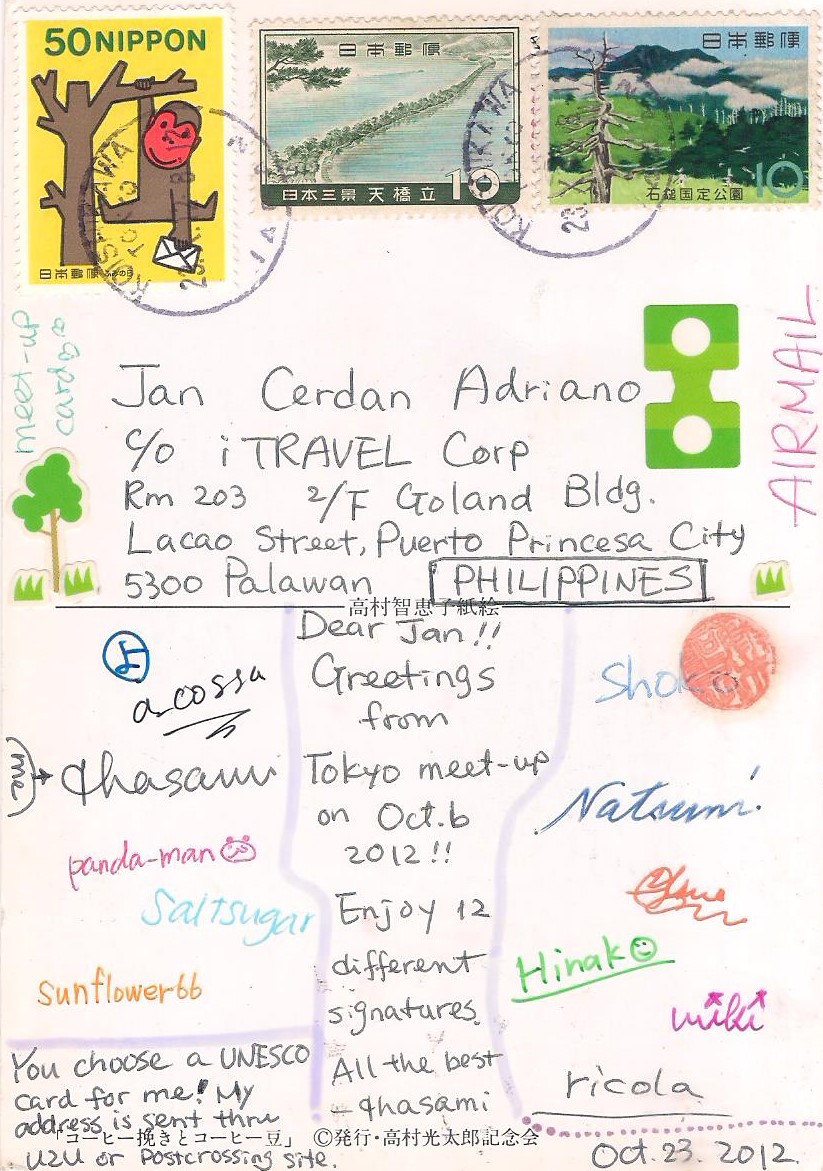 50 NIPPON
日本郵便 ふみの日
日本郵便
日本三景 天橋立 10
日本郵便
石鎚国定公園 10
KOISHIKAWA
meet-up
card
AIRMAIL
Jan Cerdan Adriano
c/o iTRAVEL Corp
Rm 203 2/F Goland Bldg.
Lacao Street, Puerto Princesa City
5300 Palawan PHILIPPINES
高村智恵子紙絵
よ
a-cossa
(me) → chasami
panda-man
Saltsugar
sunflower66
You choose a UNESCO
card for me! My
address is sent thru
U2U or Postcrossing site.
Dear Jan!!
Greetings
from
Tokyo meet-up
on Oct.6
2012!!
Enjoy 12
different
signatures.
All the best
- chasami
Shoko
Natsumi
Hinako
miki
ricola
「コーヒー挽きとコーヒー豆」 ©発行・高村光太郎記念会
Oct.23.2012.